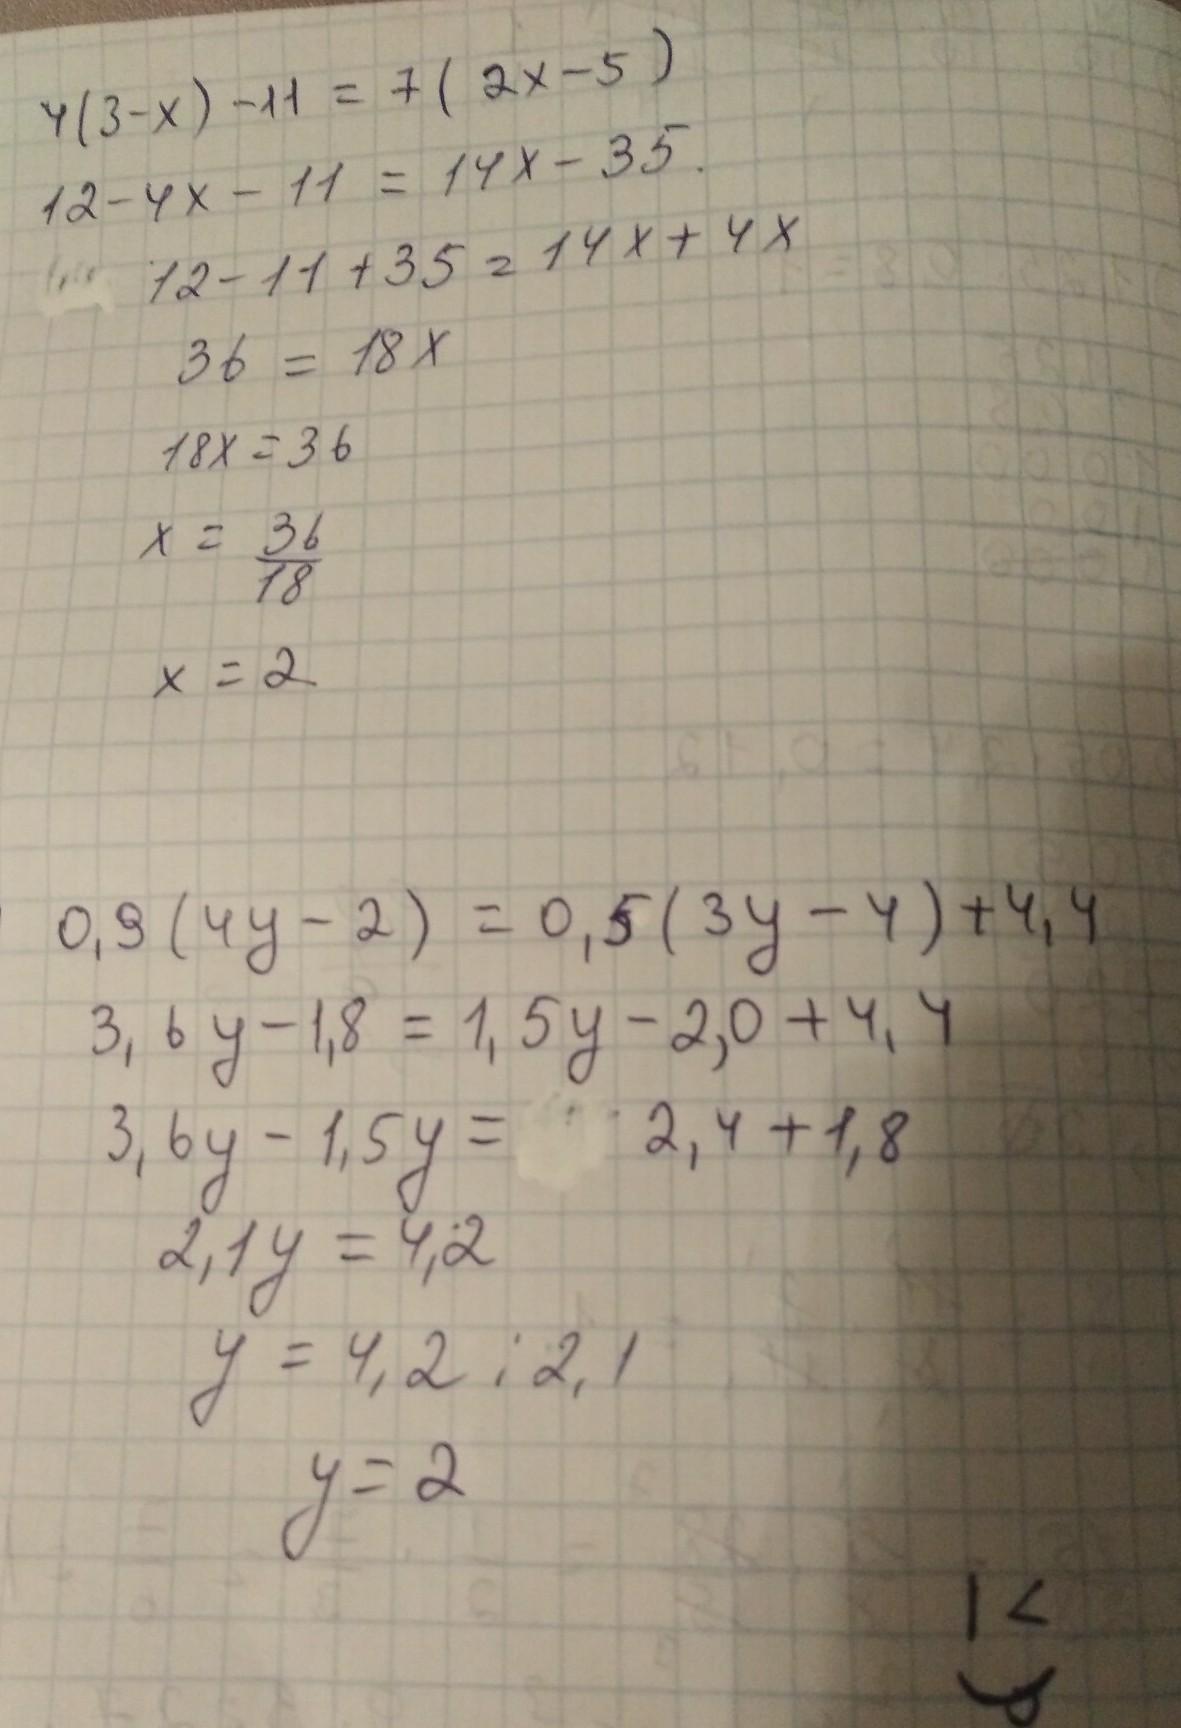 4(3-x)-11 = 7(2x-5)
12-4x-11 = 14x-35.
12-11+35=14x+4x
36 = 18x
18x=36
x = 36/18
x = 2
0,9(4y-2) = 0,5(3y-4)+4,4
3,6y-1,8 = 1,5y-2,0+4,4
3,6y-1,5y= 2,4+1,8
2,1y=4,2
y = 4,2:2,1
y=2